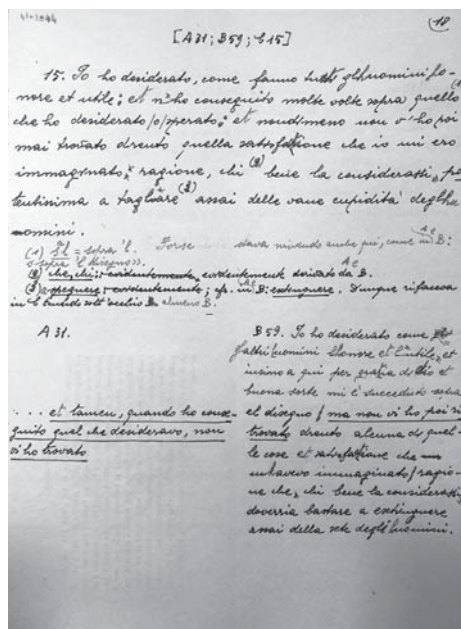 (18
[A 31; B 59; C 15]
15. Io ho desiderato, come fanno tutti gli huomini, ho-
nore et utile; et n' ho conseguito molte volte sopra quello (1)
che ho desiderato /o/ sperato; et nondimeno non v' ho poi
mai trovato drento quella satisfatione che io mi ero
immaginato; ragione, chi (2) bene la considerassi, po-
tentissima a tagliare (3) assai delle vane cupidità degli hu-
omini.
(1) = sopra 'l. Forse stava mirando anche più, come in B:
sopra 'l disegno.
(2) che, chi: evidentemente derivato da B.
(3) evidentemente; cfr. in B: extinguere. Dunque rifaceva
in C avendo sott'occhio B.
A 31.
. . . et tamen, quando ho conse-
guito quel che desideravo, non
vi ho trovato
B 59. Io ho desiderato come
gl'altri huomini l'honore et l'utile, et
insino a qui per gratia di Dio et
buona sorte mi è succeduto sopra
el disegno / ma non vi ho poi ri
trovato drento alcuna di quel-
le cose et satisfatione che
m'havevo immaginato / ragio-
ne che, chi bene la considerassi,
doverria bastare a extinguere
assai della sete degli huomini.